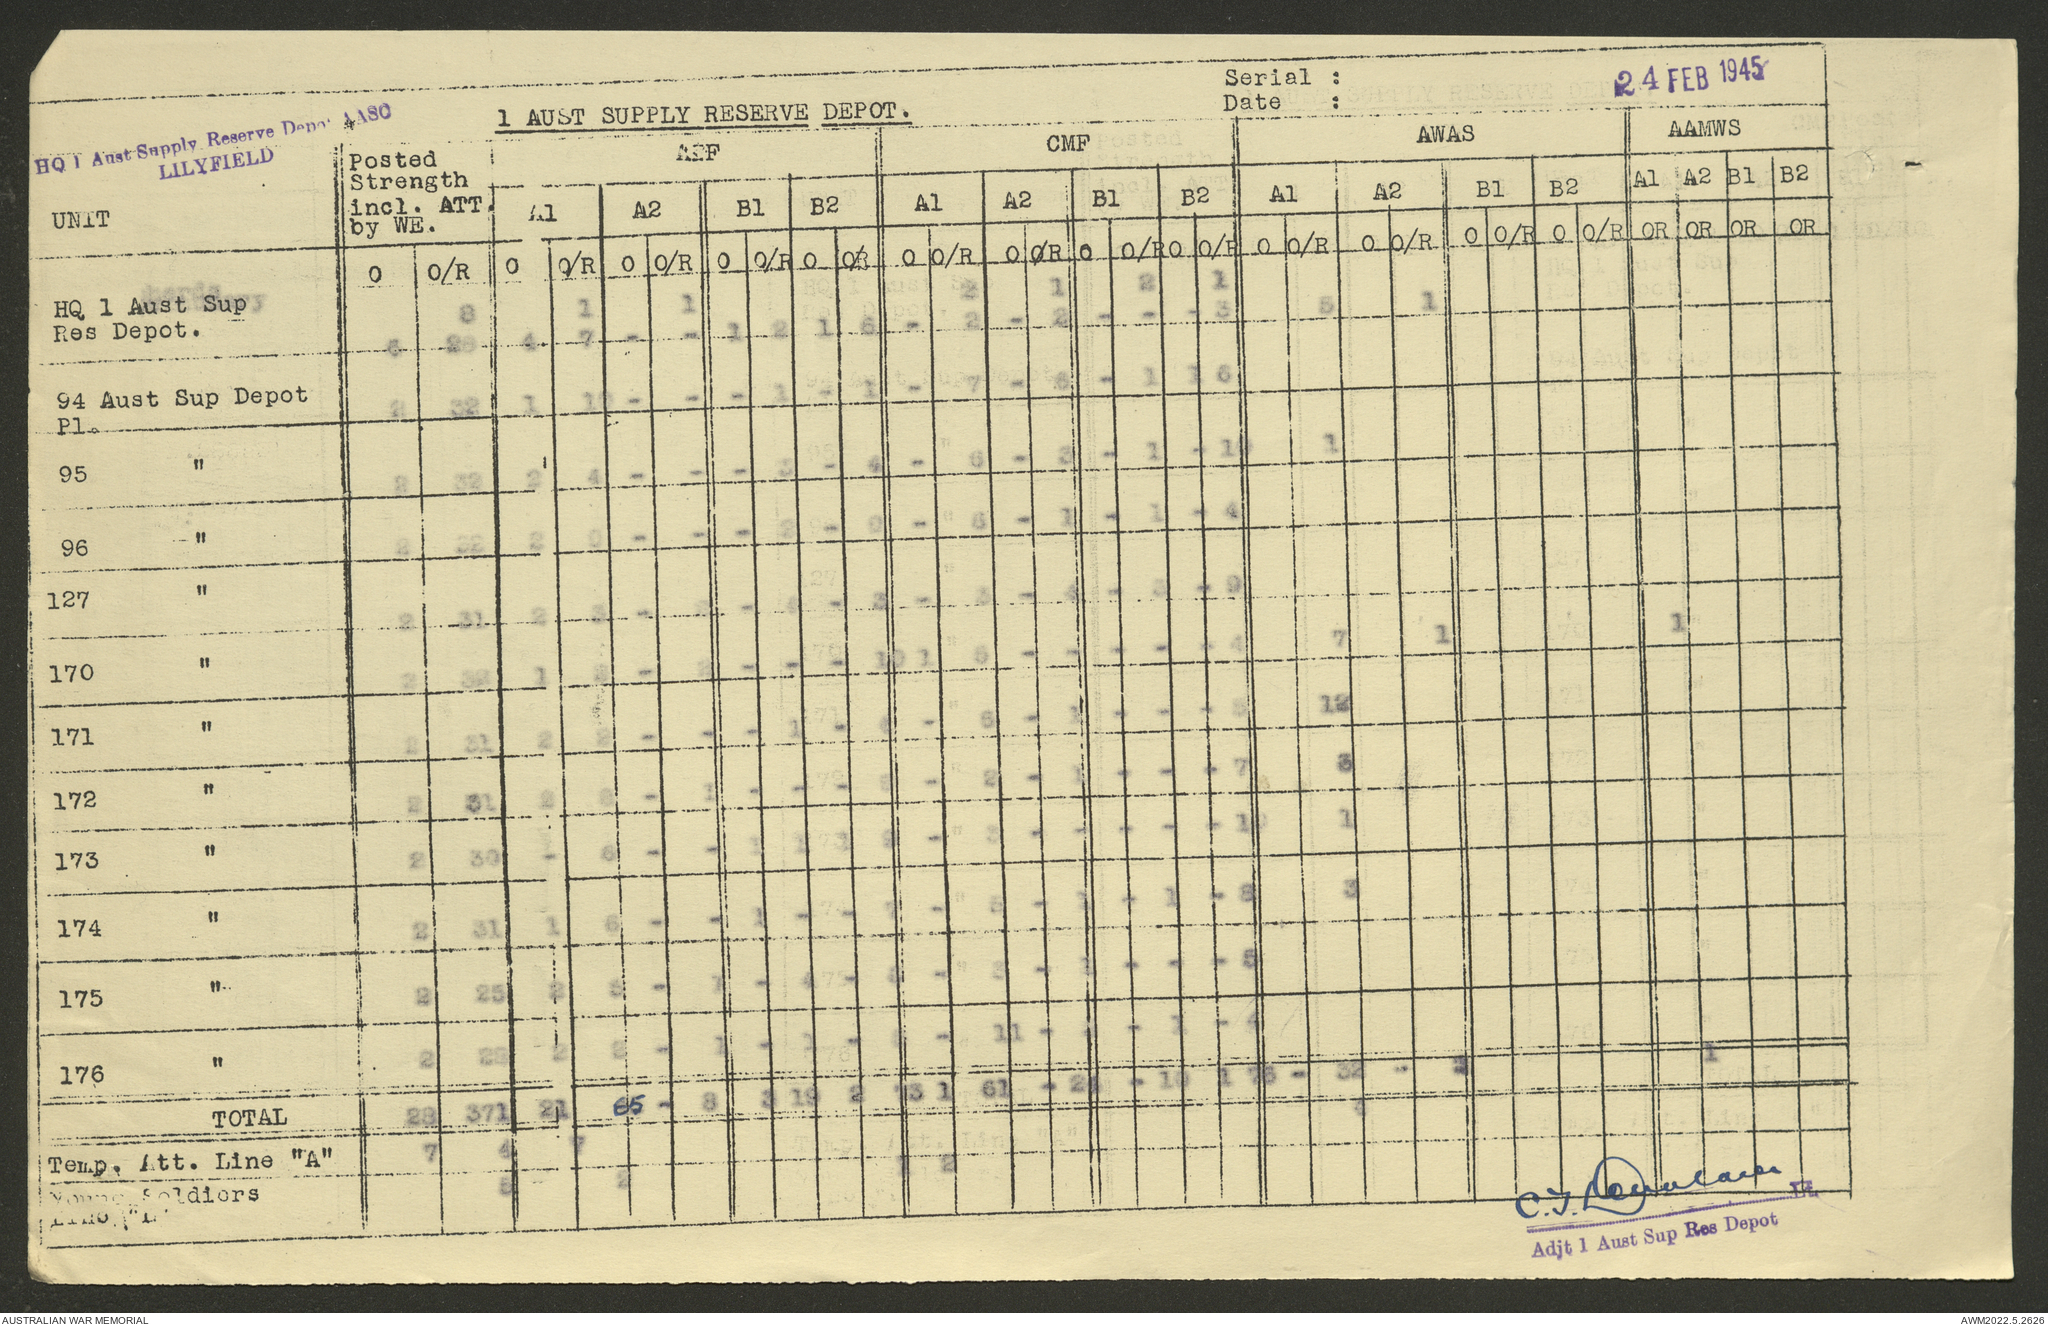 Serial :
24 FEB 1945
Date :
HQ 1 Aust Supply Reserve Depot AASC
LILYFIELD
1 AUST SUPPLY RESERVE DEPOT.
UNIT
Posted
Strength
incl. ATT.
by WE.
AIF CMF AWAS AAMWS
A1 A2 B1 B2 A1 A2 B1 B2 A1 A2 B1 B2 A1 A2 B1 B2
O O/R O O/R O O/R O O/R O O/R O O/R O O/R O O/R O O/R O O/R O O/R O O/R O O/R OR OR OR OR
HQ 1 Aust Sup 8 1 1 2 1 2 1
Res Depot. 6 28 4 7 - - 1 2 1 6 - 2 - 2 - - - 3 5 1
94 Aust Sup Depot 2 32 1 10 - - - 1 - 1 - 7 - 5 - 1 1 6
Pl.
95 " 2 32 2 4 - - - 3 - 4 - 6 - 3 - 1 - 10 1
96 " 2 2 - - - 2 - - - 1 - 1 - 4
127 " 2 31 2 3 - - - 3 - 3 - 4 - 3 - 9
170 " 2 1 - - - - 10 1 5 - - - - - 4 7 1 1
171 " 2 31 2 2 - - - 1 - - 6 - 1 - - - 5 12
172 " 2 31 2 - 1 - - - 2 - 1 - - - 7 6
173 " 2 30 - 6 - - 1 1 - 3 - - - - - 10 1
174 " 2 31 1 6 - - 1 - - 7 - 5 - 1 - 1 - 8 3
175 " 2 25 2 5 - 1 - 4 - - - 1 - - - 5
176 " 2 2 2 - 1 - 1 - - 11 - - 1 - 4
TOTAL 28 371 21 65 - 8 3 19 2 73 1 61 - - 10 1 76 - 32 - 1
Temp. Att. Line "A" 7 4 7 1 2
Young Soldiers 2
C.J.
Lt
Adjt 1 Aust Sup Res Depot
AUSTRALIAN WAR MEMORIAL
AWM2022.5.2626